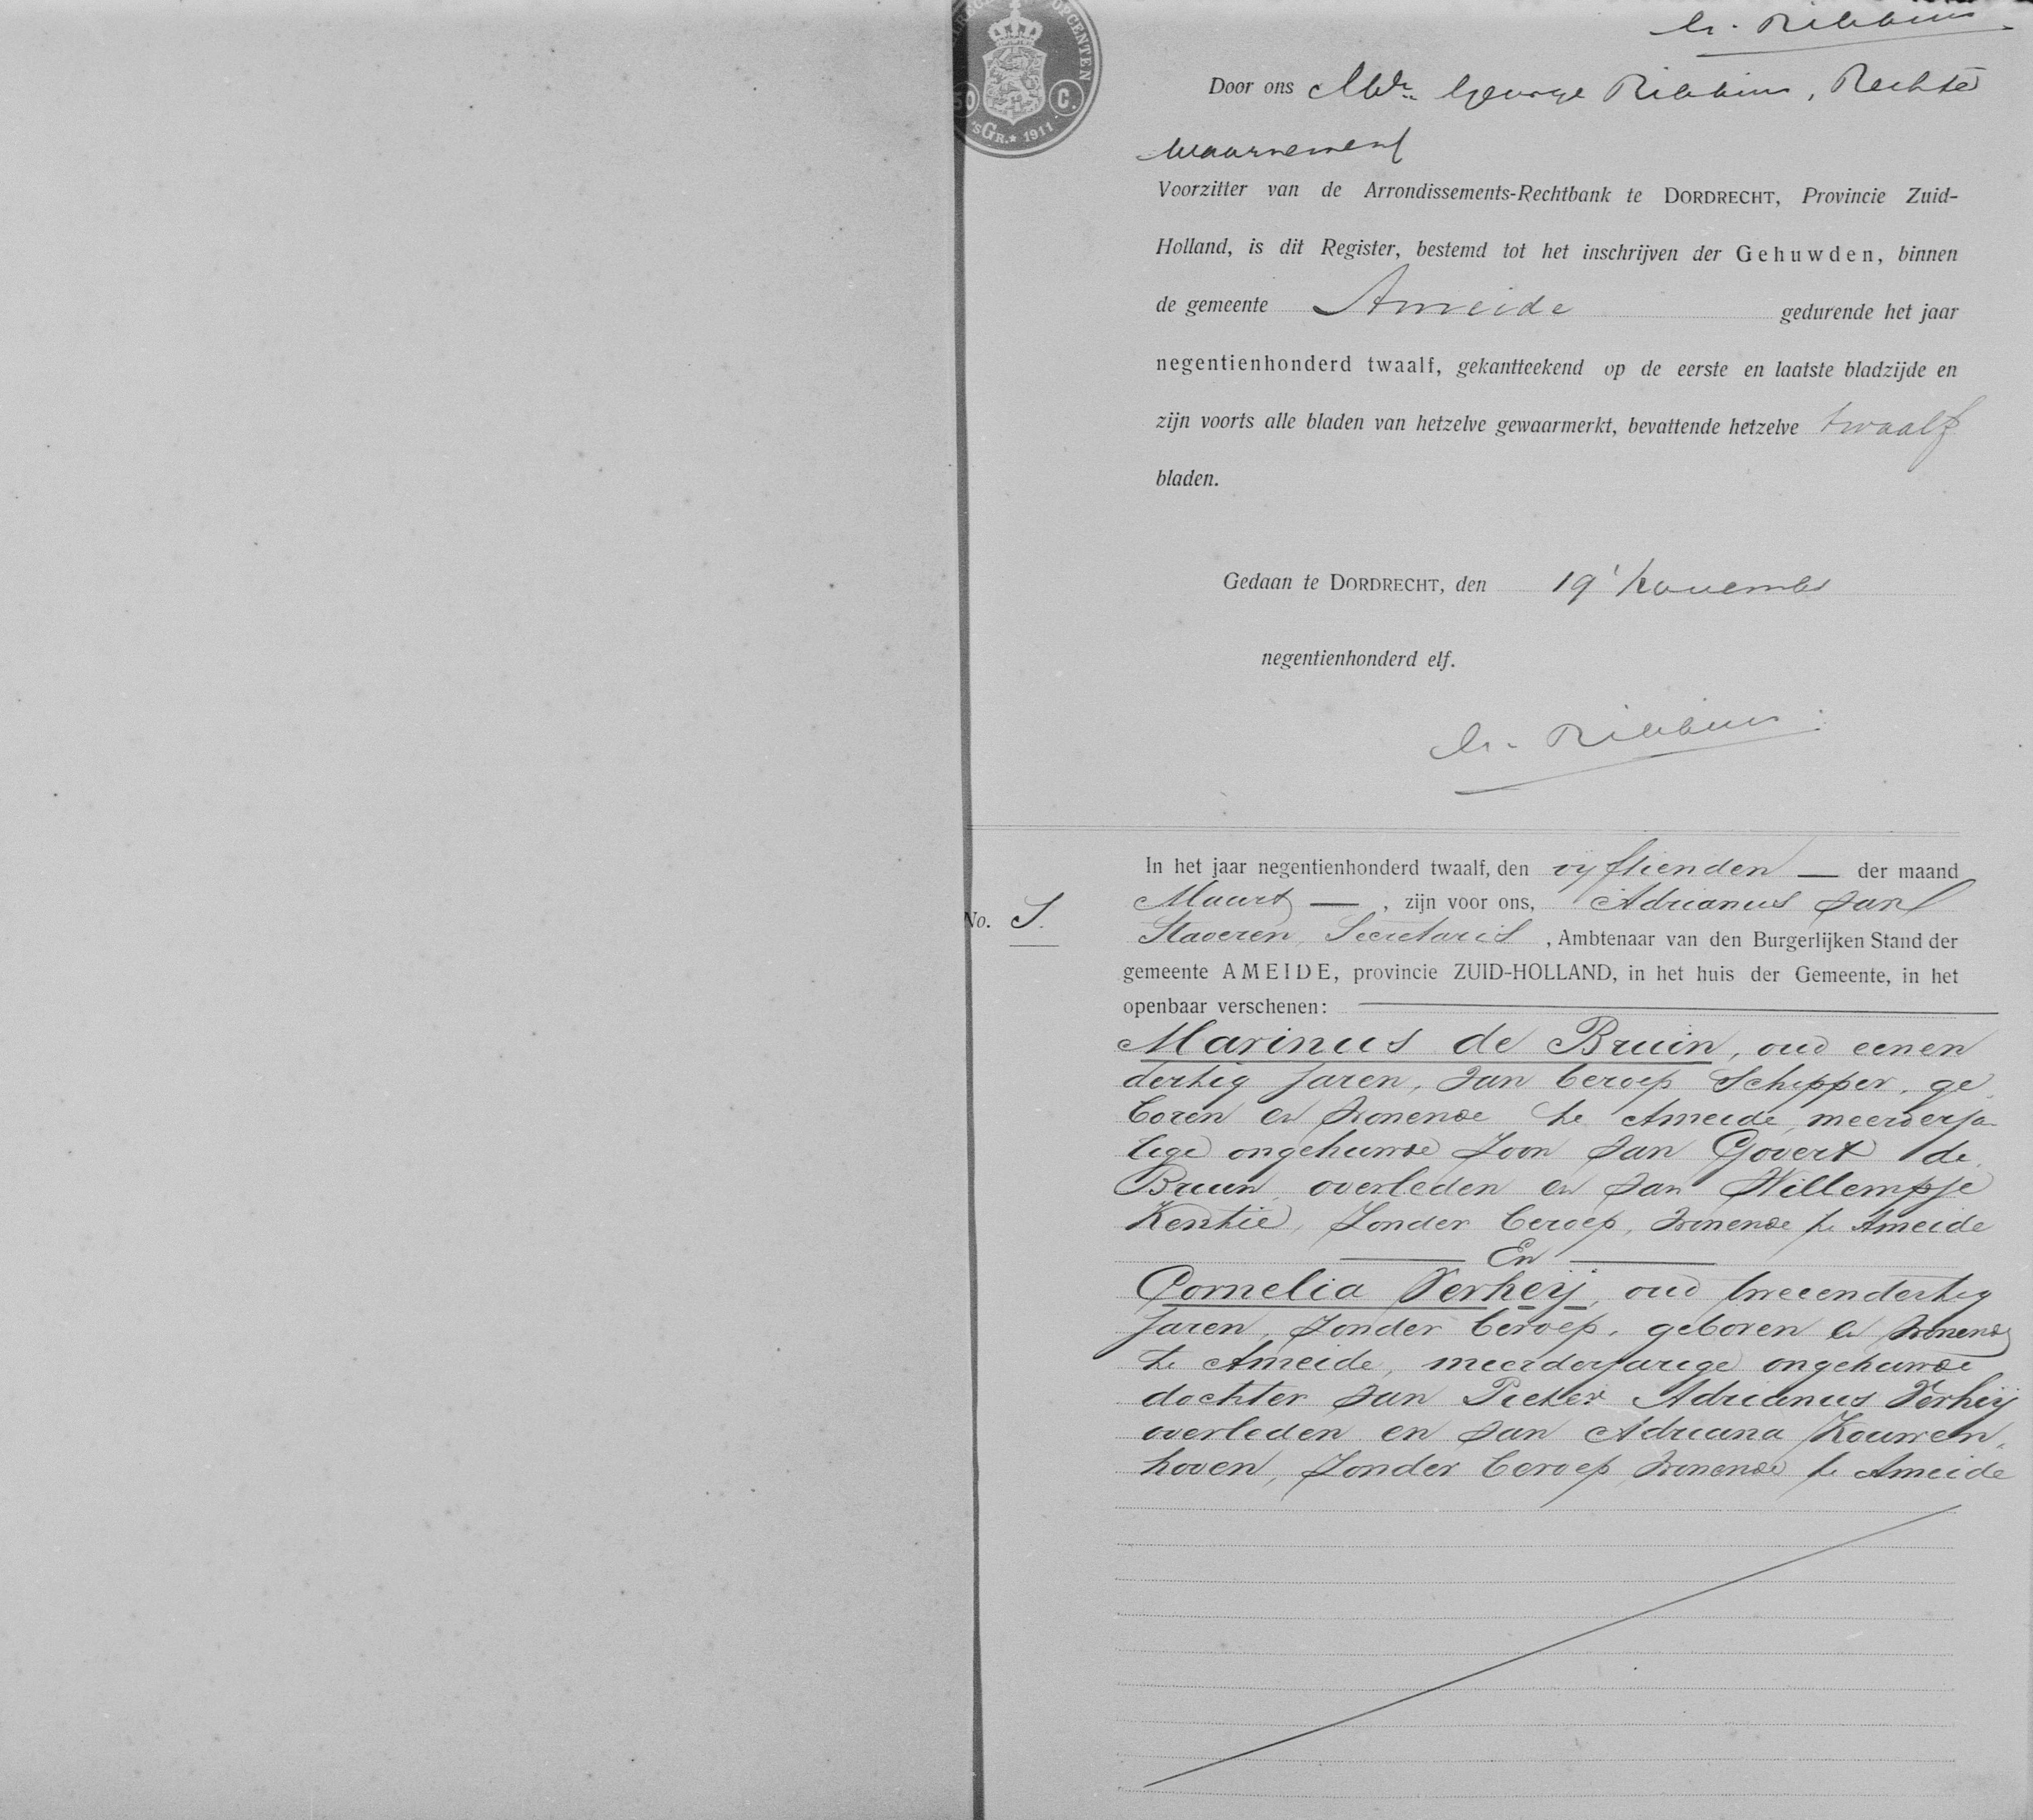 G. Ribbius
OPCENTEN
50 C.
'sGR.* 1911
Door ons Mr. George Ribbius, Rechter
waarnemend
Voorzitter van de Arrondissements-Rechtbank te DORDRECHT, Provincie Zuid-
Holland, is dit Register, bestemd tot het inschrijven der Gehuwden, binnen
de gemeente Ameide gedurende het jaar
negentienhonderd twaalf, gekantteekend op de eerste en laatste bladzijde en
zijn voorts alle bladen van hetzelve gewaarmerkt, bevattende hetzelve twaalf
bladen.
Gedaan te DORDRECHT, den 19 November
negentienhonderd elf.
G. Ribbius
In het jaar negentienhonderd twaalf, den vijftienden — der maand
Maart —, zijn voor ons, Adrianus van
No. 1. Staveren, Secretaris, Ambtenaar van den Burgerlijken Stand der
gemeente AMEIDE, provincie ZUID-HOLLAND, in het huis der Gemeente, in het
openbaar verschenen:
Marinus de Bruin, oud eenen
dertig jaren, van beroep Schipper, ge
boren en wonende te Ameide, meerderja
rige ongehuwde zoon van Govert de
Bruin, overleden en van Willempje
Kentie, zonder beroep, wonende te Ameide
En
Cornelia Verheij, oud tweeendertig
jaren, zonder beroep, geboren en wonende
te Ameide, meerderjarige ongehuwde
dochter van Pieter Adrianus Verheij
overleden en van Adriana Kouwen
hoven, zonder beroep, wonende te Ameide